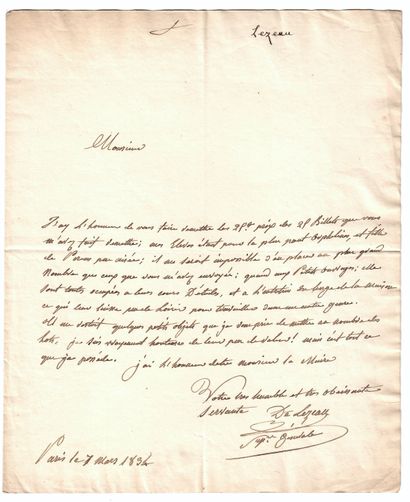 Lezeau
Monsieur
J'ay l'honneur de vous faire remettre les 29f prix des 29 Billets que vous
m'avez fait remettre; mes Eleves étant pour la plus part orphelines et fille
de Peres peu aisés; il me serait impossible d'en placer un plus grand
Nombre que ceux que vous m'avez envoyés; quand aux Petits ouvrages; elle
sont toutes occupées a leurs cours D'études, et a l'entretien du linge de la maison
ce qui leur laisse peu de loisir pour travailler dans un autre genre.
Il me restait quelques petits objets que je vous prie de mettre au nombre des
lots, je suis vrayment honteuse de leur peu de valeur! mais c'est tout ce
que je possede. j'ai l'honneur detre monsieur le Maire
Votre tres humble et tres obeissante
servante De Lezeau
Supre Générale
Paris le 7 Mars 1834